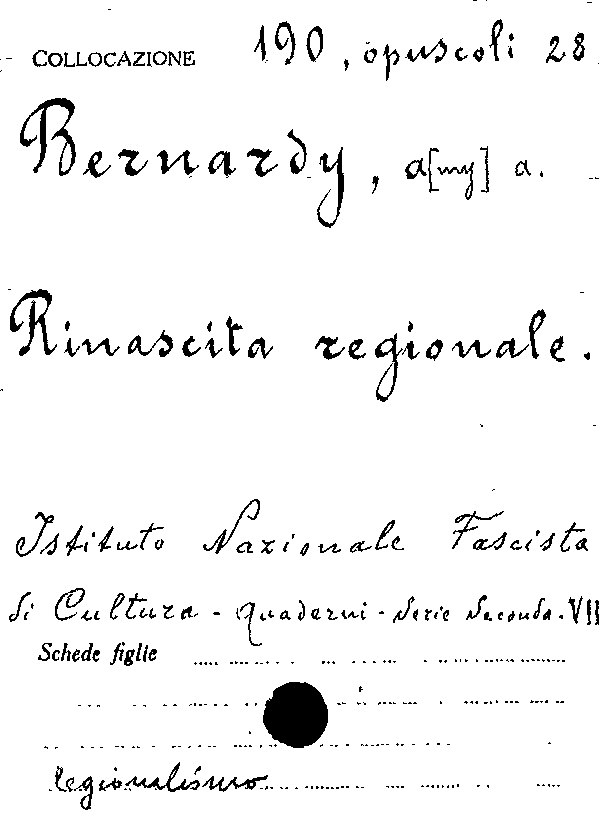 COLLOCAZIONE 190, opuscoli 28
Bernardy, a[my] a.
Rinascita regionale.
Istituto Nazionale Fascista
di Cultura - Quaderni - Serie Seconda. VII
Schede figlie
regionalismo